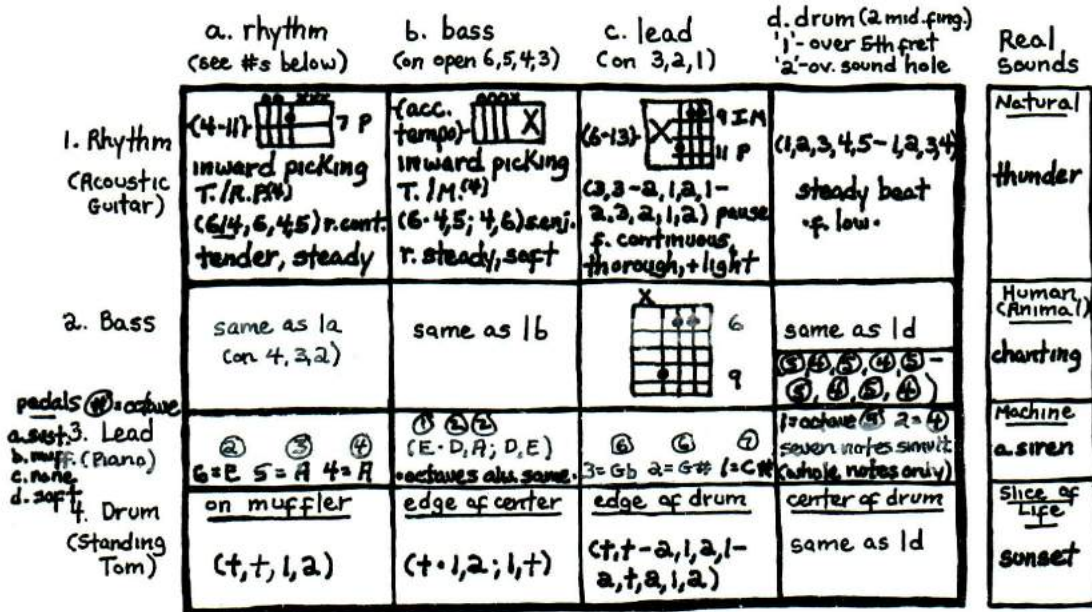 a. rhythm
(see #s below)
b. bass
(on open 6,5,4,3)
c. lead
(on 3,2,1)
d. drum (2 mid. fing.)
'1'-over 5th fret
'2'-ov. sound hole
Real
Sounds
1. Rhythm
(Acoustic
Guitar)
(4-11)
7 P
inward picking
T./R.P.(4)
(6/4, 6, 4,5) r. cont.
tender, steady
(acc.
tempo)
X
inward picking
T./M.(4)
(6·4,5; 4,6) s.enj.
r. steady, soft
(6-13)
X
9 I M
11 P
(3,3-2,1,2,1-
2,3,2,1,2) pause
f. continuous,
thorough, + light
(1,2,3,4,5-1,2,3,4)
steady beat
·f. low·
Natural
thunder
2. Bass
same as 1a
(on 4,3,2)
same as 1b
X
6
9
same as 1d
(5,4,5,4,5-
5,4,5,4)
Human
(Animal)
chanting
pedals # = octave
a. sust.
b. muff.
c. none
d. soft
3. Lead
(Piano)
2 3 4
6=E 5=A 4=A
1 2 2
(E·D,A; D,E)
·octaves alw. same·
6 6 7
3=Gb 2=G# 1=C#
1=octave 5 2=4
seven notes simult.
(whole notes only)
Machine
a siren
4. Drum
(Standing
Tom)
on muffler
(t,t,1,2)
edge of center
(t·1,2; 1,t)
edge of drum
(t,t-2,1,2,1-
2,t,2,1,2)
center of drum
same as 1d
Slice of
Life
sunset